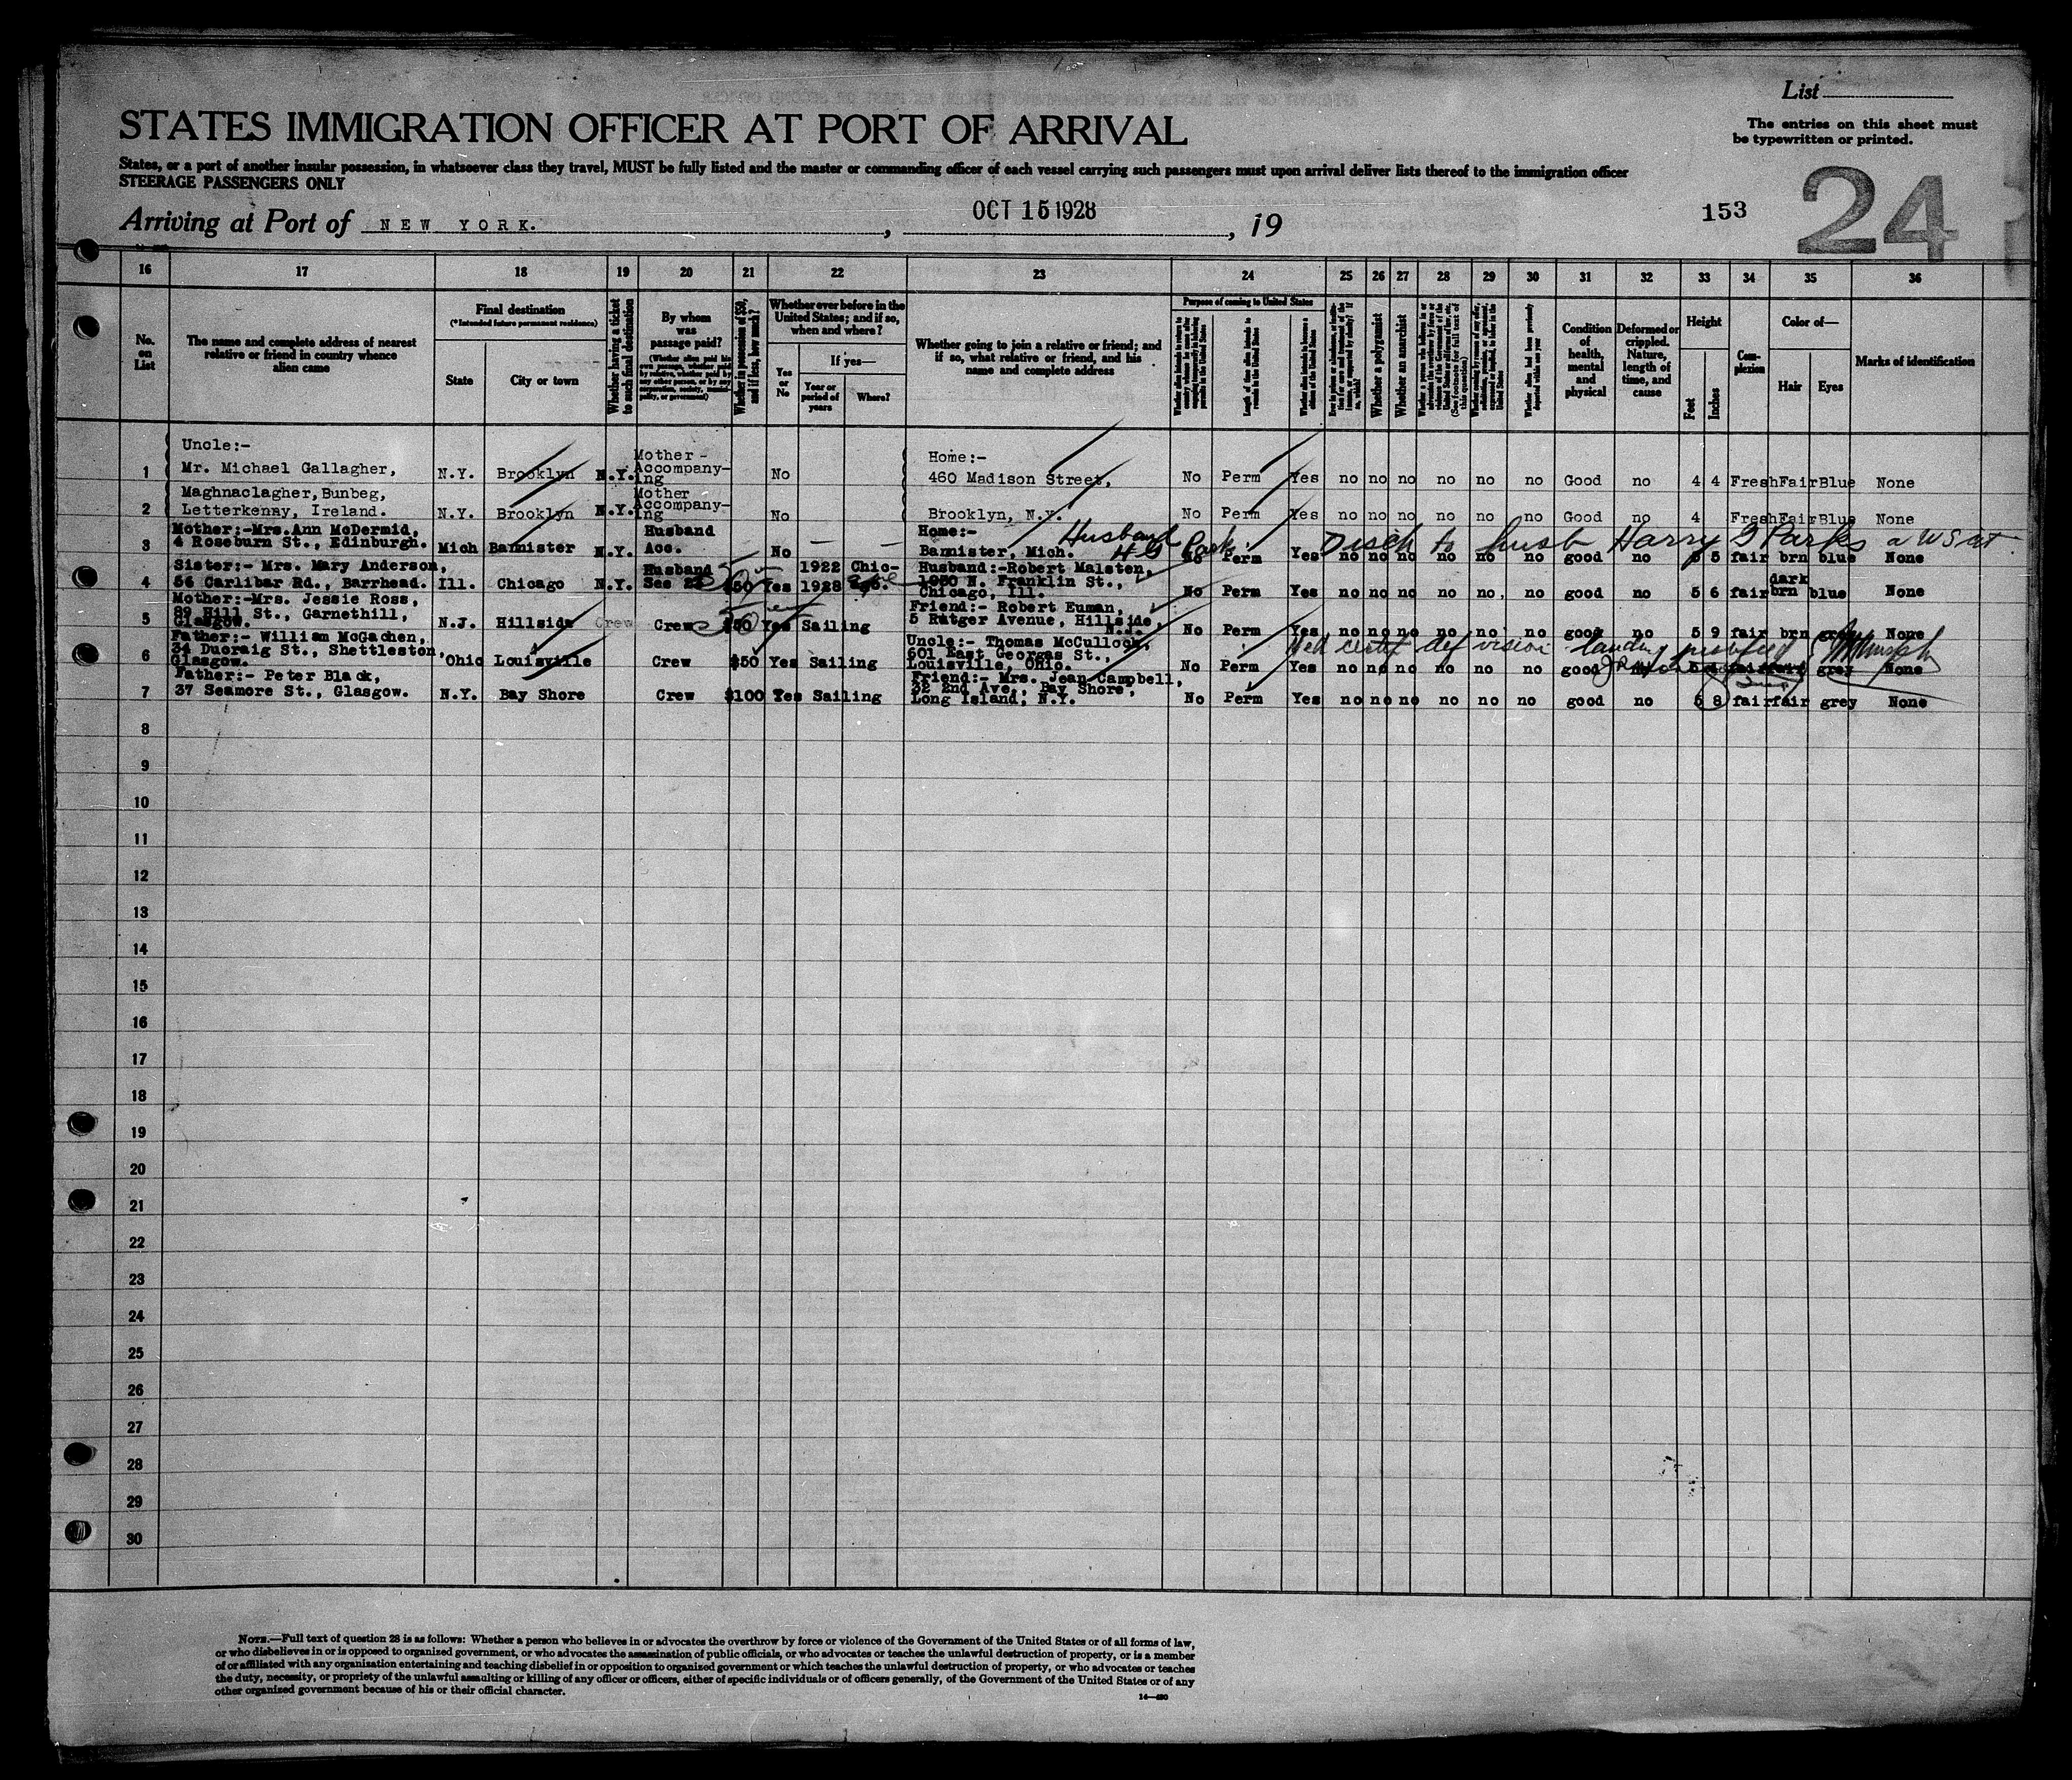 List
STATES IMMIGRATION OFFICER AT PORT OF ARRIVAL
The entries on this sheet must
be typewritten or printed.
States, or a port of another insular possession, in whatsoever class they travel, MUST be fully listed and the master or commanding officer of each vessel carrying such passengers must upon arrival deliver lists thereof to the immigration officer
STEERAGE PASSENGERS ONLY
24
153
Arriving at Port of NEW YORK. , OCT 15 1928 , 19
16 17 18 19 20 21 22 23 24 25 26 27 28 29 30 31 32 33 34 35 36
No. on List
The name and complete address of nearest relative or friend in country whence alien came
Final destination
(*Intended future permanent residence)
State
City or town
Whether having a ticket to such final destination
By whom was passage paid?
Whether in possession of $50, and if less, how much?
Whether ever before in the United States; and if so, when and where?
Yes or No
If yes—
Year or period of years
Where?
Whether going to join a relative or friend; and if so, what relative or friend, and his name and complete address
Purpose of coming to United States
Length of time alien intends to remain in the United States
Whether alien intends to become a citizen of the United States
Whether a polygamist
Whether an anarchist
Whether alien had been previously deported within one year
Condition of health, mental and physical
Deformed or crippled. Nature, length of time, and cause
Height
Feet
Inches
Complexion
Color of—
Hair
Eyes
Marks of identification
Uncle:- Mother- Home:-
1 Mr. Michael Gallagher, N.Y. Brooklyn N.Y. Accompanying No 460 Madison Street, No Perm Yes no no no no no no Good no 4 4 Fresh Fair Blue None
Maghnaclagher, Bunbeg, Mother
2 Letterkenny, Ireland. N.Y. Brooklyn N.Y. Accompanying No Brooklyn, N.Y. No Perm Yes no no no no no no Good no 4 Fresh Fair Blue None
Mother:-Mrs. Ann McDermid, Husband Home:- Husband
3 4 Roseburn St., Edinburgh. Mich Bannister N.Y. Acc. No — — Bannister, Mich. H G Park. No Perm Yes no no no no no no good no 5 5 fair brn blue None
Disch to husb Harry G Parks a U S cit
Sister:- Mrs. Mary Anderson, Husband 1922 Chic- Husband:-Robert Malsten,
4 56 Carlibar Rd., Barrhead. Ill. Chicago N.Y. See 23 $50 Yes 1928 ago. 1950 N. Franklin St., No Perm Yes no no no no no no good no 5 6 fair dark brn blue None
Chicago, Ill.
Mother:-Mrs. Jessie Ross, Friend:- Robert Euman,
5 89 Hill St., Garnethill, N.J. Hillside Crew Crew $50 Yes Sailing 5 Rutger Avenue, Hillside, No Perm Yes no no no no no no good no 5 9 fair brn grey None
Glasgow. N.J.
Father:- William McGachen, Uncle:- Thomas McCulloch,
Med certif def vision landing
6 34 Duoraig St., Shettleston, Ohio Louisville Crew $50 Yes Sailing 601 East Georgas St., No Perm Yes no no no no no no good no fair grey None
Glasgow. Louisville, Ohio.
Father:- Peter Black, Friend:- Mrs. Jean Campbell,
7 37 Seamore St., Glasgow. N.Y. Bay Shore Crew $100 Yes Sailing 32 2nd Ave., Bay Shore, No Perm Yes no no no no no no good no 5 8 fair fair grey None
Long Island, N.Y.
8
9
10
11
12
13
14
15
16
17
18
19
20
21
22
23
24
25
26
27
28
29
30
NOTE.—Full text of question 28 is as follows: Whether a person who believes in or advocates the overthrow by force or violence of the Government of the United States or of all forms of law,
or who disbelieves in or is opposed to organized government, or who advocates the assassination of public officials, or who advocates or teaches the unlawful destruction of property, or is a member
of or affiliated with any organization entertaining and teaching disbelief in or opposition to organized government or which teaches the unlawful destruction of property, or who advocates or teaches
the duty, necessity, or propriety of the unlawful assaulting or killing of any officer or officers, either of specific individuals or of officers generally, of the Government of the United States or of any
other organized government because of his or their official character.
14—490